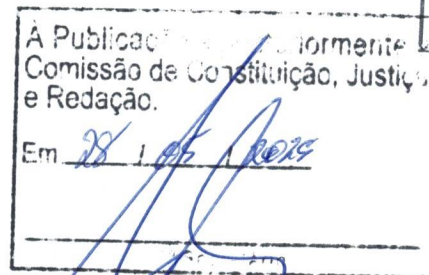 À Publicaç
Comissão de Constituição, Justiç
e Redação.
Em 28 / 05 /